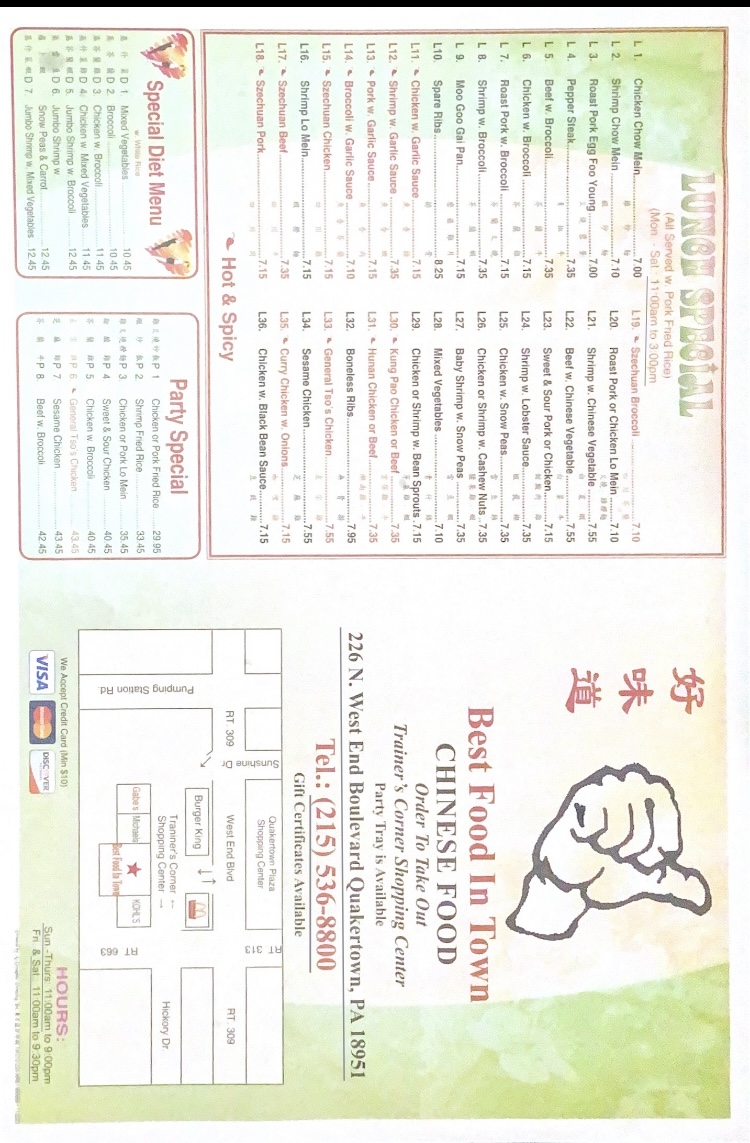 LUNCH SPECIAL
(All Served w. Pork Fried Rice)
(Mon - Sat: 11:00am to 3:00pm)
L 1. Chicken Chow Mein 7.00
L 2. Shrimp Chow Mein 7.10
L 3. Roast Pork Egg Foo Young 7.00
L 4. Pepper Steak 7.35
L 5. Beef w. Broccoli 7.35
L 6. Chicken w. Broccoli 7.15
L 7. Roast Pork w. Broccoli 7.15
L 8. Shrimp w. Broccoli 7.35
L 9. Moo Goo Gai Pan 7.15
L10. Spare Ribs 8.25
L11. Chicken w. Garlic Sauce 7.15
L12. Shrimp w. Garlic Sauce 7.35
L13. Pork w. Garlic Sauce 7.15
L14. Broccoli w. Garlic Sauce 7.10
L15. Szechuan Chicken 7.15
L16. Shrimp Lo Mein 7.15
L17. Szechuan Beef 7.35
L18. Szechuan Pork 7.15
L19. Szechuan Broccoli 7.10
L20. Roast Pork or Chicken Lo Mein 7.10
L21. Shrimp w. Chinese Vegetable 7.55
L22. Beef w. Chinese Vegetable 7.55
L23. Sweet & Sour Pork or Chicken 7.15
L24. Shrimp w. Lobster Sauce 7.35
L25. Chicken w. Snow Peas 7.35
L26. Chicken or Shrimp w. Cashew Nuts 7.35
L27. Baby Shrimp w. Snow Peas 7.35
L28. Mixed Vegetables 7.10
L29. Chicken or Shrimp w. Bean Sprouts 7.15
L30. Kung Pao Chicken or Beef 7.35
L31. Hunan Chicken or Beef 7.35
L32. Boneless Ribs 7.95
L33. General Tso's Chicken 7.55
L34. Sesame Chicken 7.55
L35. Curry Chicken w. Onions 7.15
L36. Chicken w. Black Bean Sauce 7.15
Hot & Spicy
Special Diet Menu
w. White Rice
D 1. Mixed Vegetables 10.45
D 2. Broccoli 10.45
D 3. Chicken w. Broccoli 11.45
D 4. Chicken w. Mixed Vegetables 11.45
D 5. Jumbo Shrimp w. Broccoli 12.45
D 6. Jumbo Shrimp w.
Snow Peas & Carrot 12.45
D 7. Jumbo Shrimp w. Mixed Vegetables 12.45
Party Special
P 1 Chicken or Pork Fried Rice 29.95
P 2 Shrimp Fried Rice 33.45
P 3 Chicken or Pork Lo Mein 35.45
P 4 Sweet & Sour Chicken 40.45
P 5 Chicken w. Broccoli 40.45
P 6 General Tso's Chicken 43.45
P 7 Sesame Chicken 43.45
P 8 Beef w. Broccoli 42.45
好味道
Best Food In Town
CHINESE FOOD
Order To Take Out
Trainer's Corner Shopping Center
Party Tray is Available
226 N. West End Boulevard Quakertown, PA 18951
Tel.: (215) 536-8800
Gift Certificates Available
Quakertown Plaza
Shopping Center
Sunshine Dr
RT 313
RT. 309
West End Blvd
RT. 309
Burger King
Traniner's Corner
Shopping Center
Hickory Dr.
Gabe's
Michaels
Best Food In Town
KOHL'S
Pumping Station Rd
RT 663
We Accept Credit Card (Min $10)
VISA
MasterCard
DISCOVER
HOURS:
Sun.-Thurs: 11:00am to 9:00pm
Fri. & Sat.: 11:00am to 9:30pm